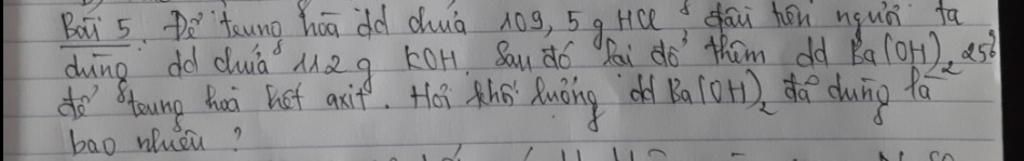 Bài 5. Để trung hoà dd chứa 109,5 g HCl đầu tiên người ta
dùng dd chứa 112 g KOH. Sau đó lại đổ thêm dd Ba(OH)₂ 25%
để trung hoà hết axit. Hỏi khối lượng dd Ba(OH)₂ đã dùng là
bao nhiêu?